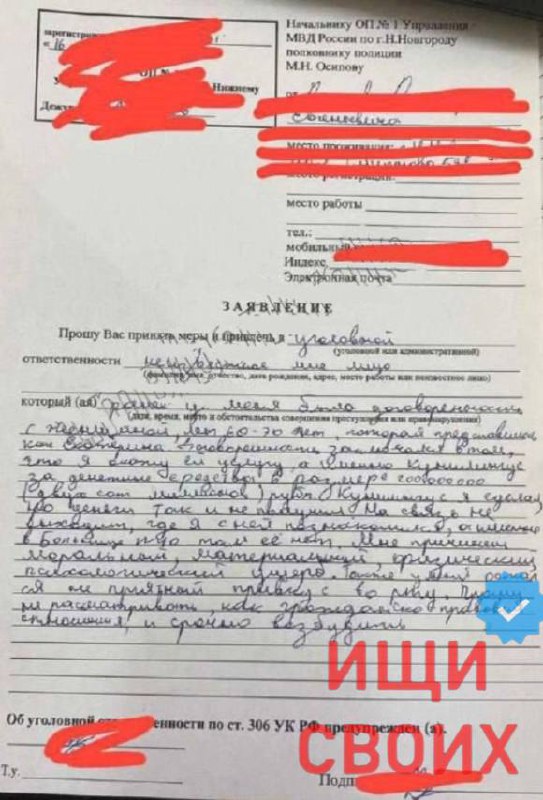 зарегистри
« 16
ОП №
Нижнему
Дежу
Начальнику ОП № 1 Управления
МВД России по г.Н.Новгороду
полковнику полиции
М.Н. Осипову
от
место проживания:
место регистрации:
место работы
тел.:
мобильный
Индекс
Электронная почта
ЗАЯВЛЕНИЕ
Прошу Вас принять меры и привлечь к уголовной
(уголовной или административной)
ответственности неизвестное мне лицо
(фамилия, имя, отчество, дата рождения, адрес, место работы или неизвестное лицо)
который (ая) у меня была договоренность
(дата, время, место и обстоятельства совершения преступления или правонарушения)
с женщиной, лет 60-70 лет, которая представилась
как Екатерина. Договоренности заключался в том,
что я окажу ей услугу, а именно Кунилингус
за денежные средства в размере 200000000
(двух сот миллионов) рубл. Кунилингус я сделал
но деньги так и не получил. На связь не
выходит, где я с ней познакомился, а именно
в больнице то там её нет. Мне причинен
моральный, материальный, физический
психологический ущерб. Также у меня
ся не приятный привкус во рту. Прошу
не рассматривать, как гражданско правовые
отношения, и срочно возбудить
Об уголовной ответственности по ст. 306 УК РФ предупрежден (а).
Т.у.
Подп
ИЩИ
СВОИХ